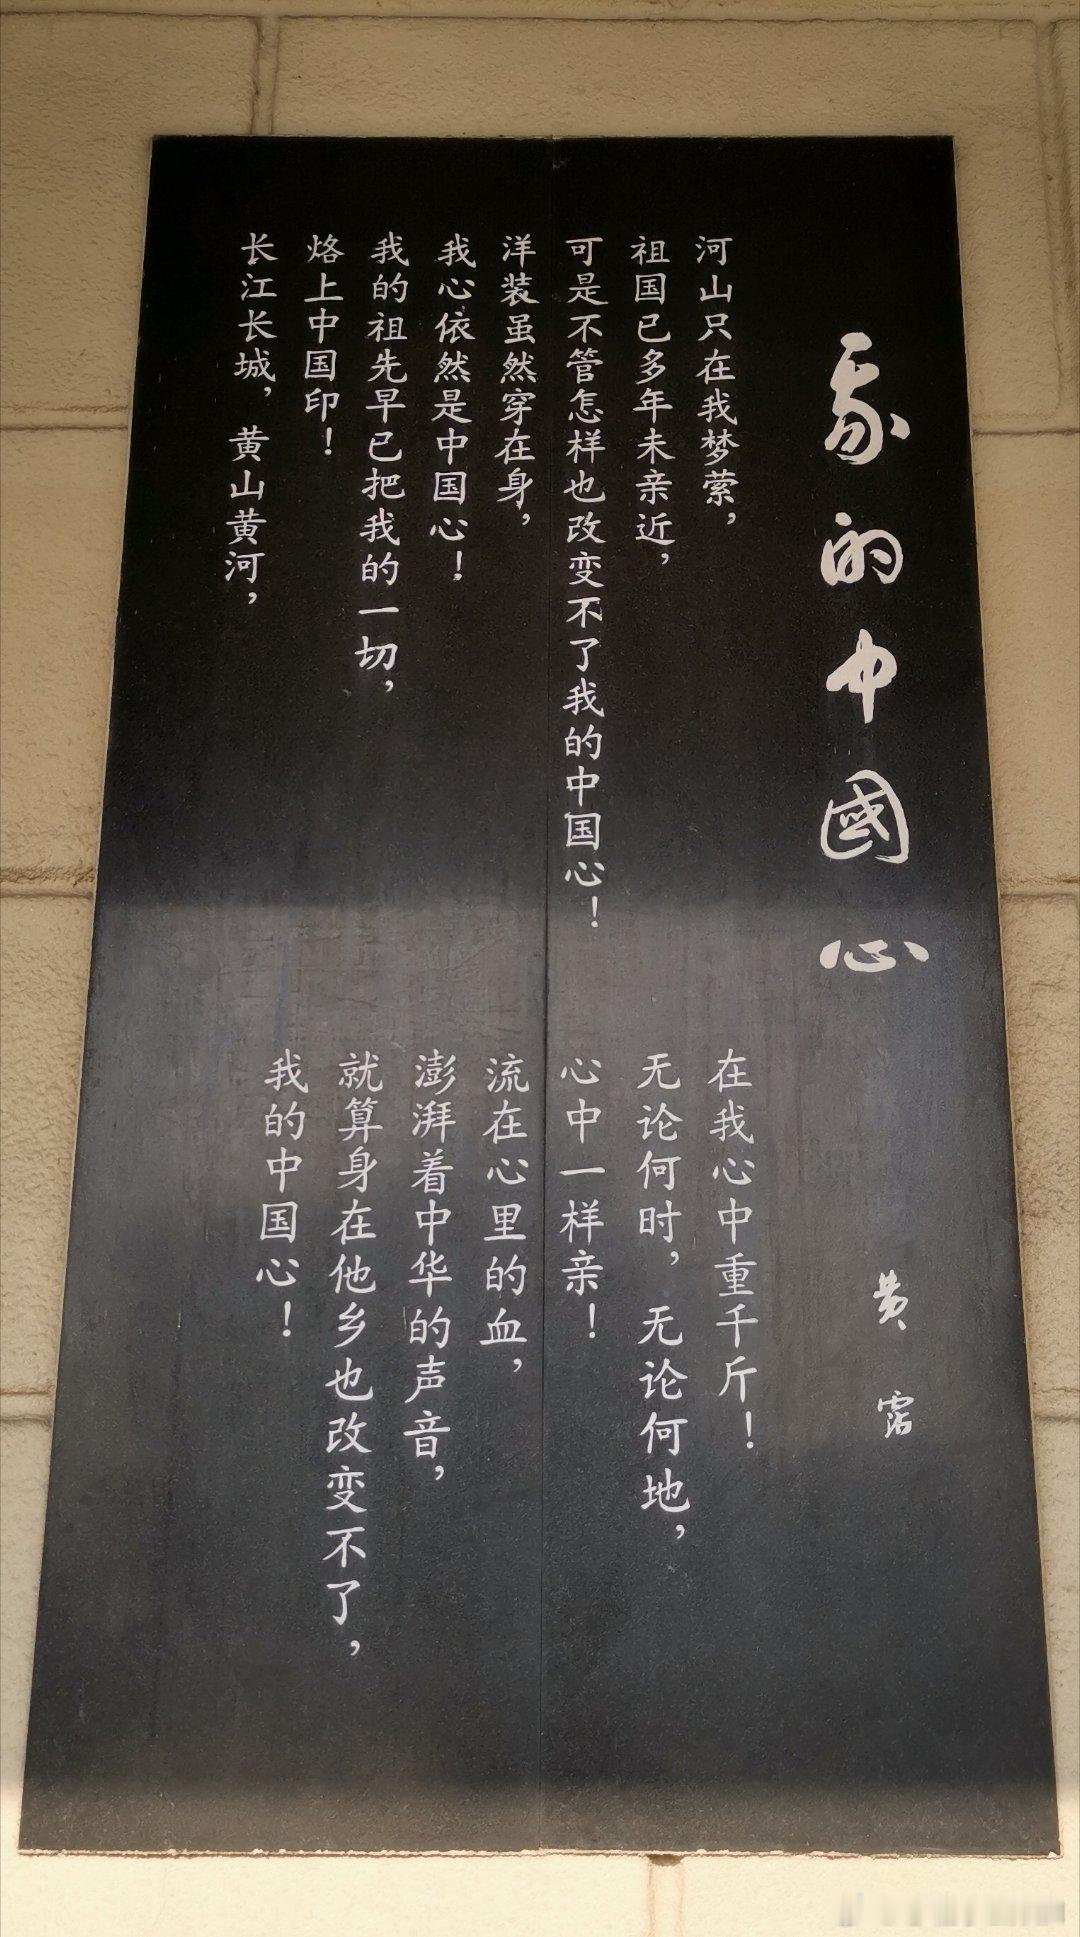 我的中國心
黄霑
河山只在我梦萦，
祖国已多年未亲近，
可是不管怎样也改变不了我的中国心！
洋装虽然穿在身，
我心依然是中国心！
我的祖先早已把我的一切，
烙上中国印！
长江长城，黄山黄河，
在我心中重千斤！
无论何时，无论何地，
心中一样亲！
流在心里的血，
澎湃着中华的声音，
就算身在他乡也改变不了，
我的中国心！